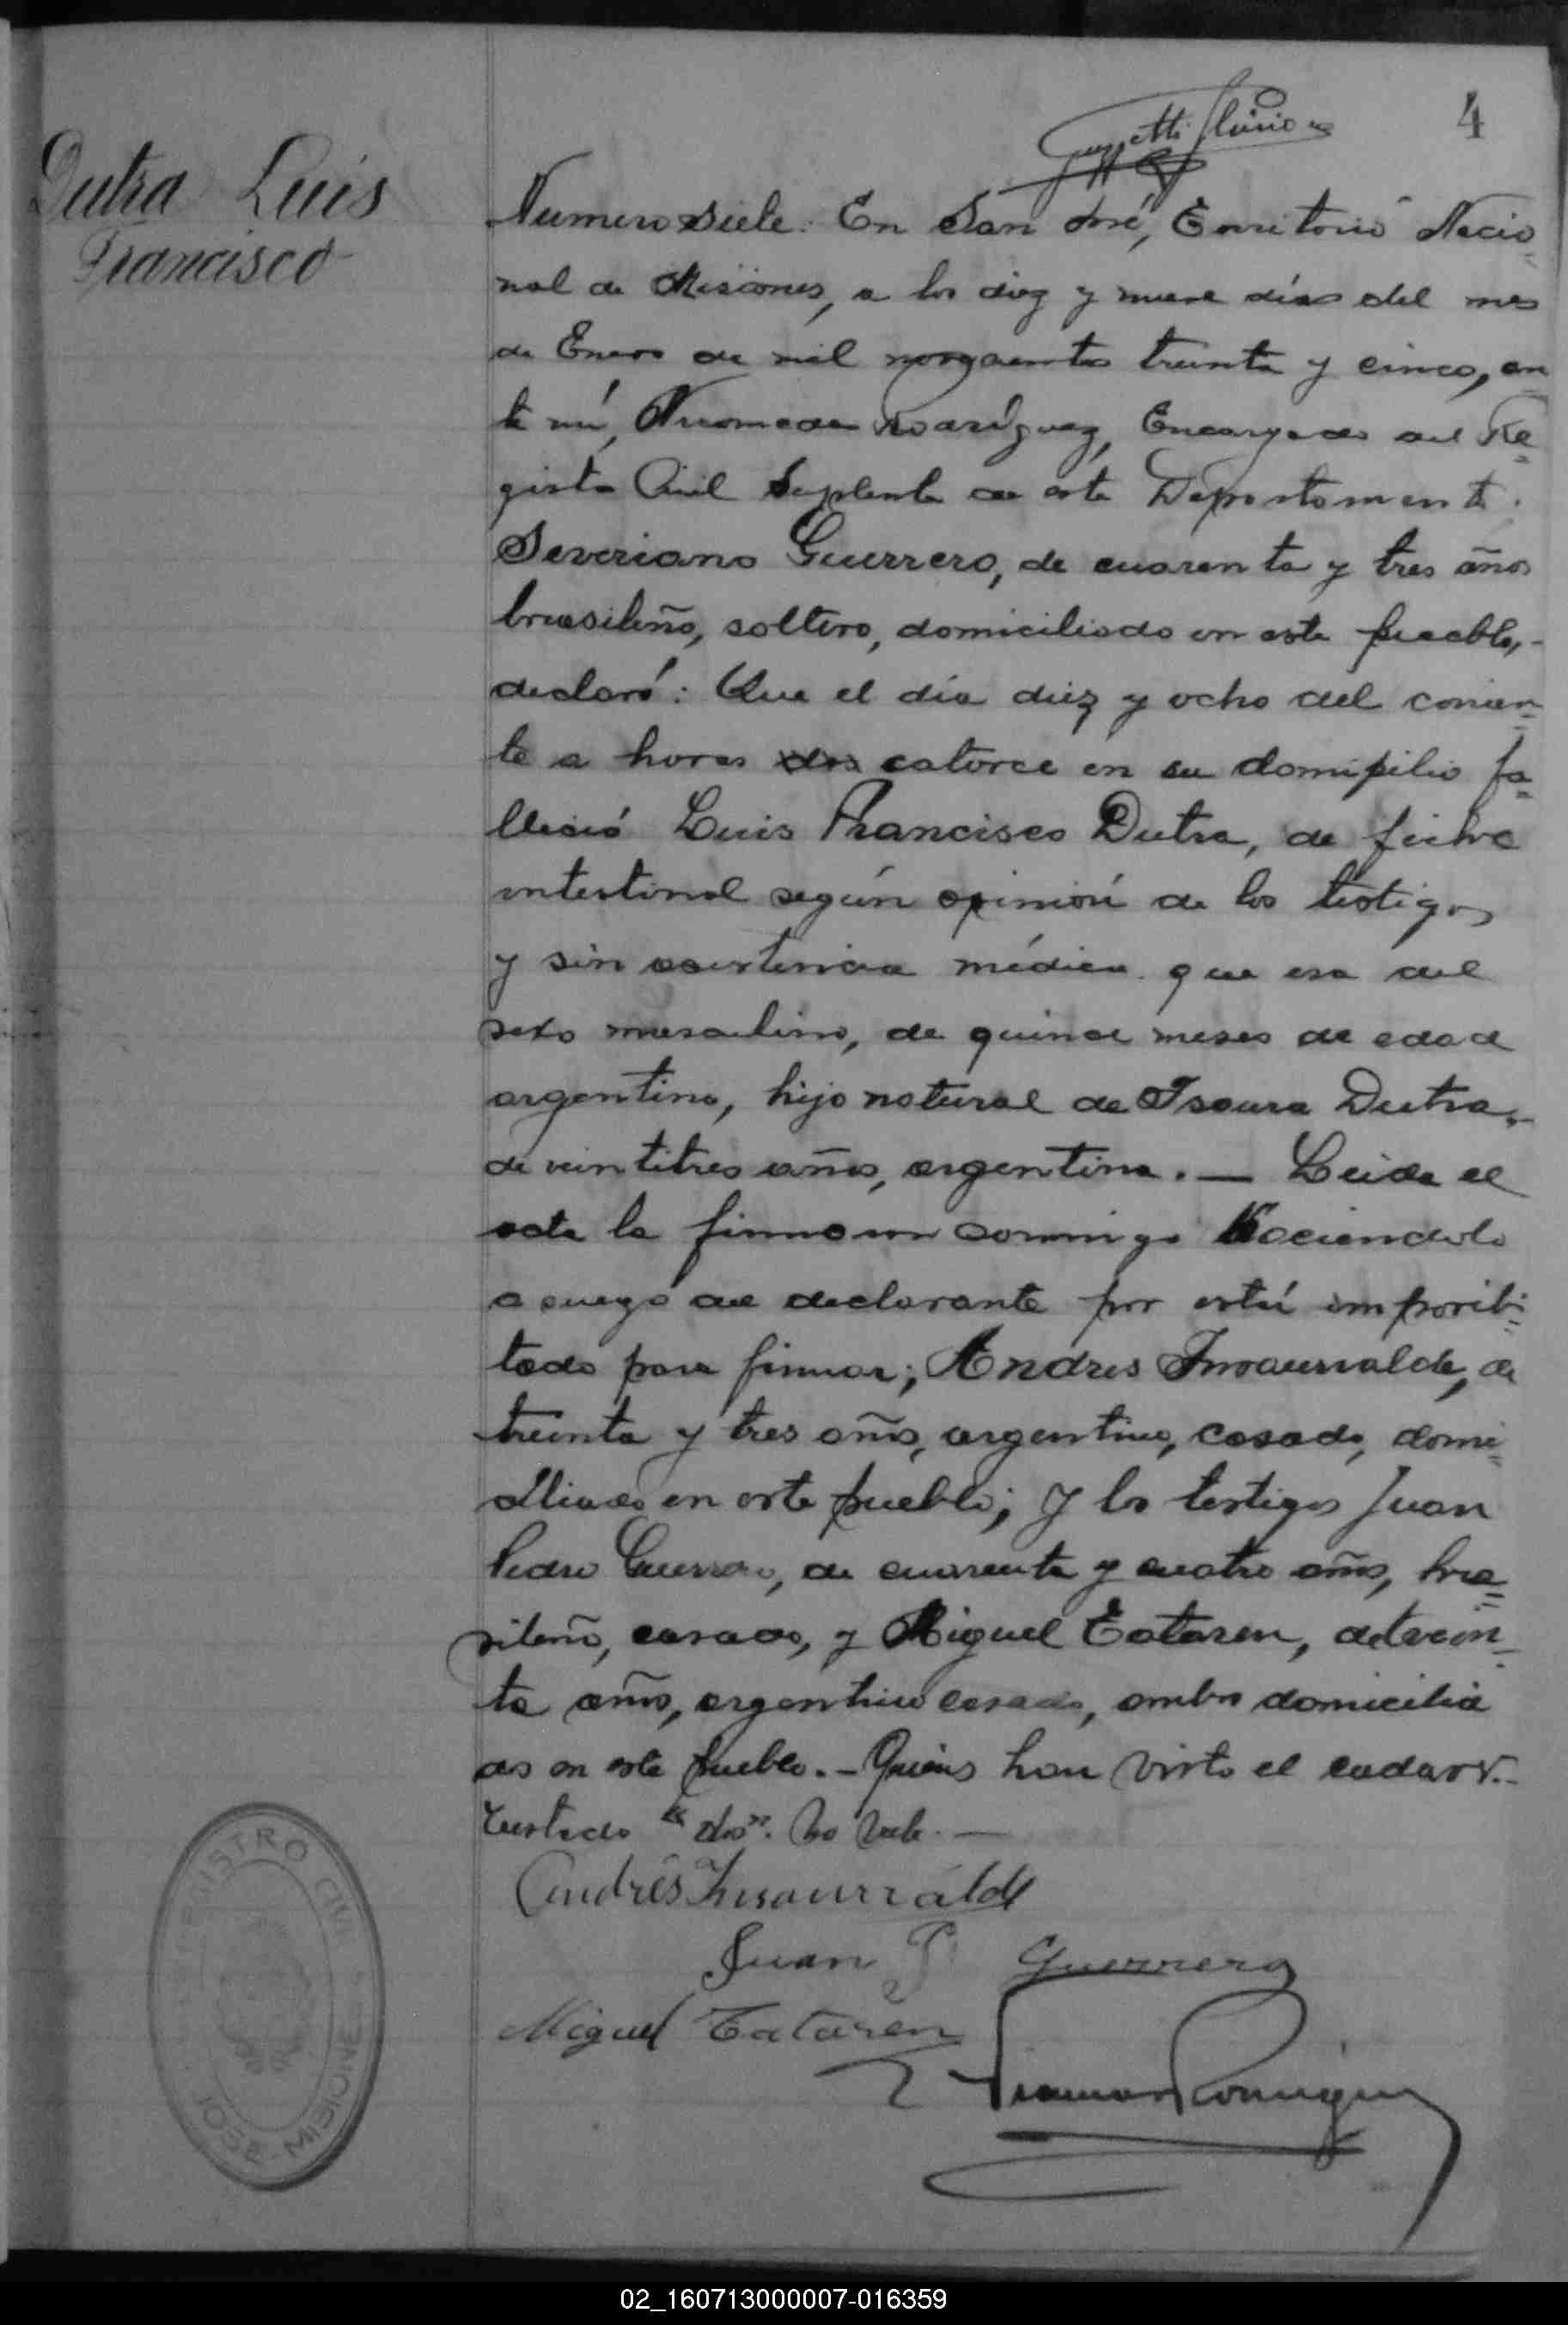 4
Dutra Luis
Francisco
Numero siete: En San José, Territorio Nacio
nal de Misiones, a los diez y nueve días del mes
de Enero de mil novecientos treinta y cinco, an
te mí, Nicomedes Rodríguez, Encargado del Re
gistro Civil Suplente de este Departamento.
Severiano Guerrero, de cuarenta y tres años
brasileño, soltero, domiciliado en este pueblo,-
declaró: Que el día diez y ocho del corrien
te a horas dos catorce en su domicilio fa
lleció Luis Francisco Dutra, de fiebre
intestinal según opinión de los testigos
y sin asistencia médica que era del
sexo masculino, de quince meses de edad
argentino, hijo natural de Isaura Dutra,-
de veintitres años, argentina.— Leida el
acta la firmaron conmigo haciendolo
a ruego del declarante por estár imposibi
tado para firmar; Andres Insaurralde, de
treinta y tres años, argentino, casado, domi
ciliado en este pueblo; y los testigos Juan
Pedro Guerrero, de cuarenta y cuatro años, bra
sileño, casado, y Miguel Tataren, de trein
ta años, argentino casado, ambos domicilia
dos en este pueblo.- Quienes han visto el cadaver.-
Testado "dos". No Vale.—
Andrés Insaurralde
Juan P. Guerrero
Miguel Tataren
REGISTRO CIVIL
JOSE - MISIONES
02_160713000007-016359